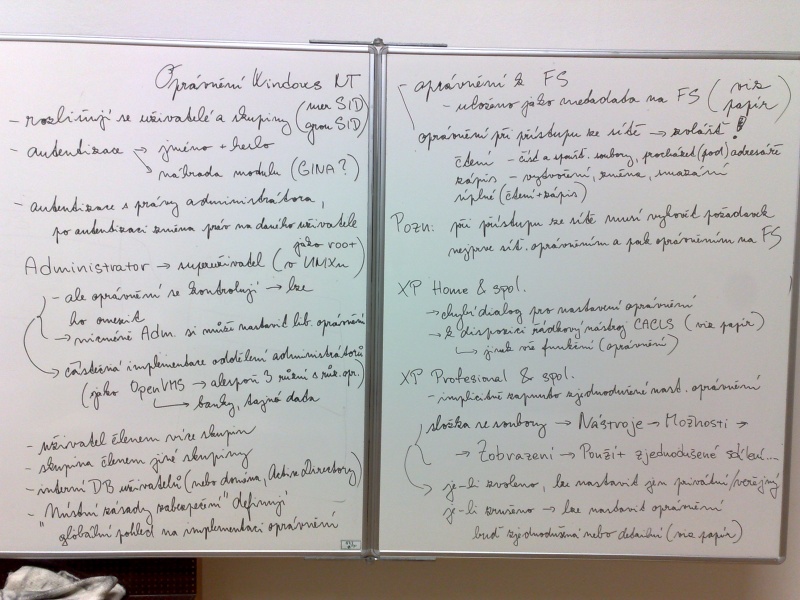 Oprávnění Windows NT
- rozlišují se uživatelé a skupiny (user SID)
(group SID)
- autentizace → jméno + heslo
→ náhrada modulu (GINA?)
- autentizace s právy administrátora,
po autentizaci změna práv na daného uživatele
Administrator → superuživatel (jako root
v UNIXu)
- ale oprávnění se kontrolují → lze
ho omezit
→ nicméně Adm. si může nastavit lib. oprávnění
→ částečná implementace oddělení administrátorů
(jako OpenVMS → alespoň 3 různí s růz. opr.)
→ banky, tajná data
- uživatel členem více skupin
- skupina členem jiné skupiny
- interní DB uživatelů (nebo doména, Active Directory)
- "Místní zásady zabezpečení" definují
globální pohled na implementaci oprávnění
- oprávnění k FS
- uloženo jako metadata na FS (viz
papír)
oprávnění při přístupu ze sítě → zvlášť!
čtení - číst a spušt. soubory, procházet (pod)adresáře
zápis - vytvoření, změna, smazání
úplné (čtení+zápis)
Pozn: při přístupu ze sítě musí vyhovět požadavek
nejprve síť. oprávněním a pak oprávněním na FS
XP Home & spol.
→ chybí dialog pro nastavení oprávnění
→ k dispozici řádkový nástroj CACLS (viz papír)
→ jinak vše funkční (oprávnění)
XP Profesional & spol.
- implicitně zapnuto zjednodušené nast. oprávnění
složka se soubory → Nástroje → Možnosti →
→ Zobrazení → Použít zjednodušené sdílení....
→ je-li zvoleno, lze nastavit jen privátní/veřejný
je-li zrušeno → lze nastavit oprávnění
buď zjednodušená nebo detailní (viz papír)